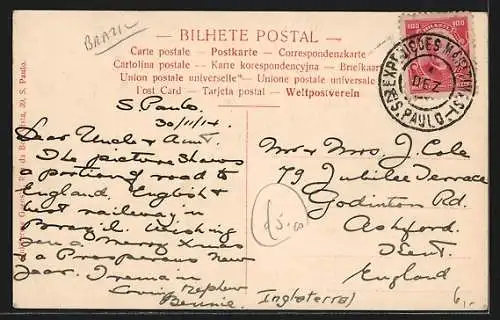 BRAZIL
BILHETE POSTAL
Carte postale - Postkarte - Correspondenzkarte
Cartolina postale - Karte korespondencyjna - Briefkaart
Union postale universelle - Unione postale universale
Post Card - Tarjeta postal - Weltpostverein
100 100
EXPEDIÇÕES
DEZ
S. PAULO
S Paulo.
30/11/14.
Dear Uncle & Aunt.
The picture shows
a portion of road to
England. English &
best railway in
Brazil. Wishing
you a Merry Xmas
& a Prosperous New
Year. I remain
loving nephew
Bennie.
Mr & Mrs J. Cole
79 Jubilee Terrace
Godinton Rd.
Ashford.
Kent.
England
(Inglaterra)
£5.00
6,-
20, S. Paulo.